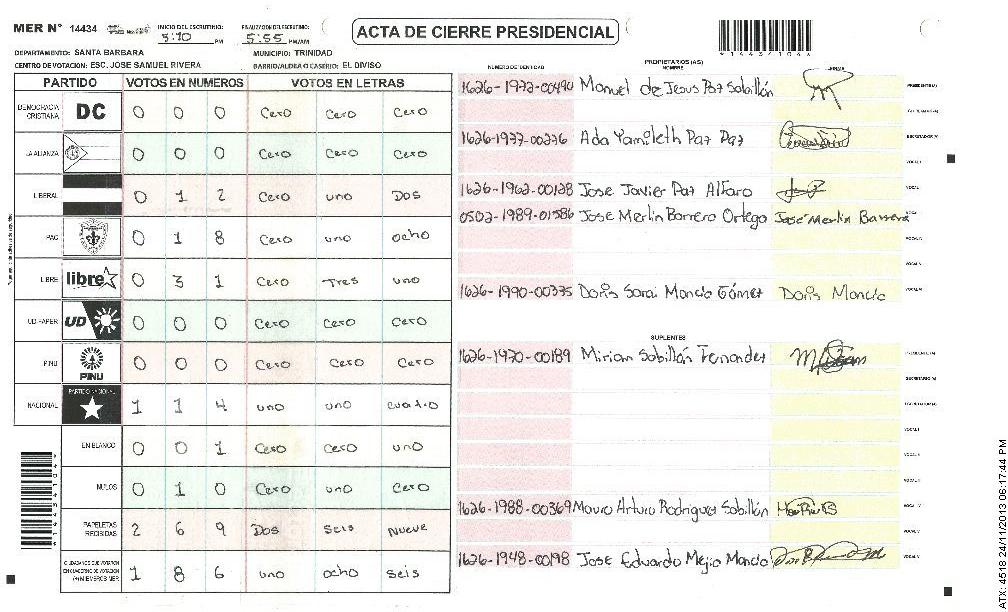 MER N° 14434 INICIO DEL ESCRUTINIO: 5:10 PM FINALIZACIÓN DEL ESCRUTINIO: 5:55 PM/AM
ACTA DE CIERRE PRESIDENCIAL
DEPARTAMENTO: SANTA BARBARA MUNICIPIO: TRINIDAD
CENTRO DE VOTACIÓN: ESC. JOSE SAMUEL RIVERA BARRIO/ALDEA O CASERIO: EL DIVISO
PARTIDO VOTOS EN NUMEROS VOTOS EN LETRAS
DEMOCRACIA CRISTIANA DC 0 0 0 Cero Cero Cero
LA ALIANZA 0 0 0 Cero Cero Cero
LIBERAL 0 1 2 Cero uno Dos
PAC 0 1 8 Cero uno ocho
LIBRE libre 0 3 1 Cero Tres uno
UD-FAPER UD 0 0 0 Cero Cero Cero
PINU PINU 0 0 0 Cero Cero Cero
NACIONAL PARTIDO NACIONAL 1 1 4 uno uno cuatro
EN BLANCO 0 0 1 Cero Cero uno
NULOS 0 1 0 Cero uno Cero
PAPELETAS RECIBIDAS 2 6 9 Dos Seis Nueve
1 8 6 uno ocho seis
NÚMERO DE IDENTIDAD PROPIETARIOS (AS) NOMBRE FIRMA
1626-1972-00490 Manuel de Jesus Paz Sabillón PRESIDENTE (A)
SECRETARIO (A)
1626-1977-00276 Ada Yamileth Paz Paz ESCRUTADOR (A)
VOCAL I
1626-1962-00128 Jose Javier Paz Alfaro
0502-1989-01586 Jose Merlin Barrera Ortega José Merlin Barrera
VOCAL IV
VOCAL V
1626-1990-00375 Doris Sarai Mancia Gómez Doris Mancia
SUPLENTES
1626-1970-00189 Miriam Sabillón Fernandez PRESIDENTE (A)
SECRETARIO (A)
ESCRUTADOR (A)
VOCAL I
1626-1988-00369 Mauro Arturo Rodriguez Sabillón
1626-1948-00198 Jose Eduardo Mejia Mancia
ATX: 4518 24/11/2013 06:17:44 PM